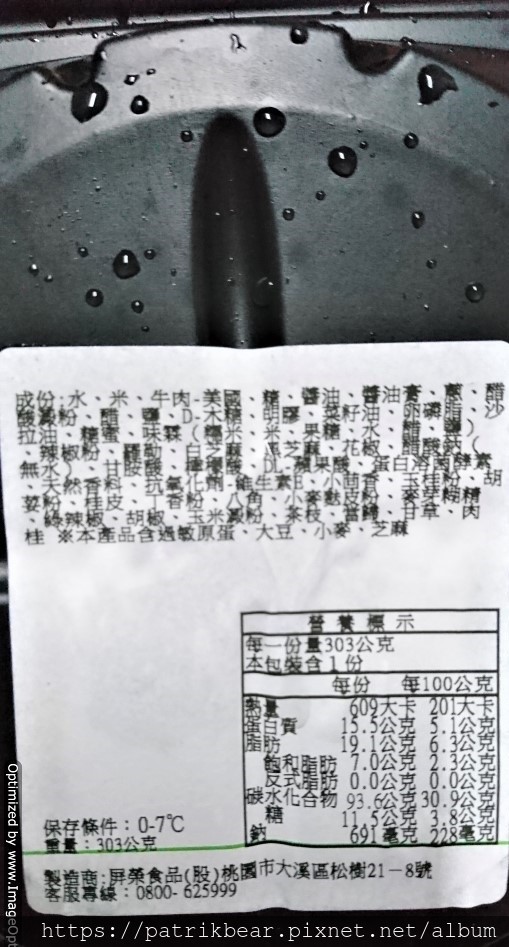 成份:水、米、牛肉-美國、糖、醬油、醬油膏、蔥、醋
酸澱粉、醋、鹽、D-木糖、胡膠、菜籽油、卵磷脂、沙
拉油、糖蜜、味霖(糯米、米、果糖、水、醋、鹽)
、辣椒粉、羅勒、白芝麻、黑芝麻、花椒、醋酸鈉(
無水)、甘胺酸、檸檬酸、DL-蘋果酸、蛋白溶菌酵素
、天然香料、抗氧化劑-維生素E、小茴香、玉桂粉、胡
荽粉、桂皮、丁香粉、八角、小麥麩皮粉、麥芽糊精
、綠辣椒、胡椒、玉米澱粉、茶枝、當歸、甘草、肉
桂 ※本產品含過敏原蛋、大豆、小麥、芝麻
營養標示
每一份量303公克
本包裝含1份
每份 每100公克
熱量 609大卡 201大卡
蛋白質 15.5公克 5.1公克
脂肪 19.1公克 6.3公克
飽和脂肪 7.0公克 2.3公克
反式脂肪 0.0公克 0.0公克
碳水化合物 93.6公克 30.9公克
糖 11.5公克 3.8公克
鈉 691毫克 228毫克
保存條件：0-7℃
重量：303公克
製造商:屏榮食品(股)桃園市大溪區松樹21－8號
客服專線：0800-625999
Optimized by www.ImageOpt
https://patrikbear.pixnet.net/album